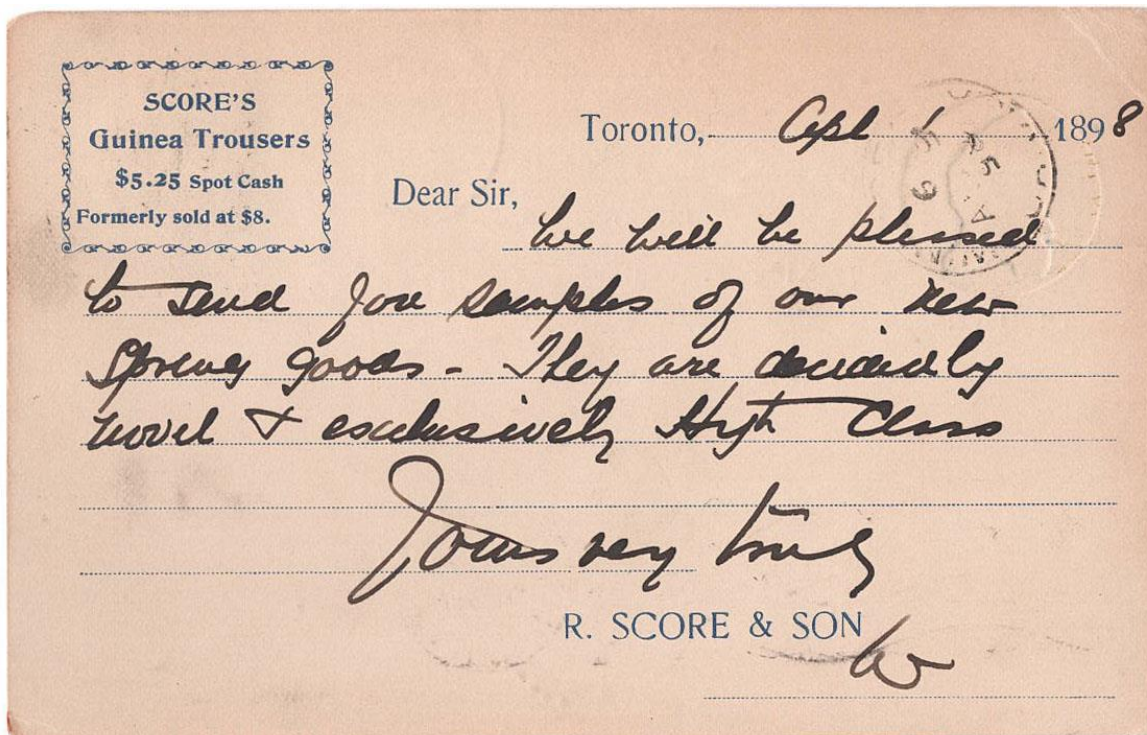 SCORE'S
Guinea Trousers
$5.25 Spot Cash
Formerly sold at $8.
Toronto, Apl 1 1898
Dear Sir,
We will be pleased
to send you samples of our new
Spring goods - They are decidedly
novel & exclusively High Class
Yours very truly
R. SCORE & SON